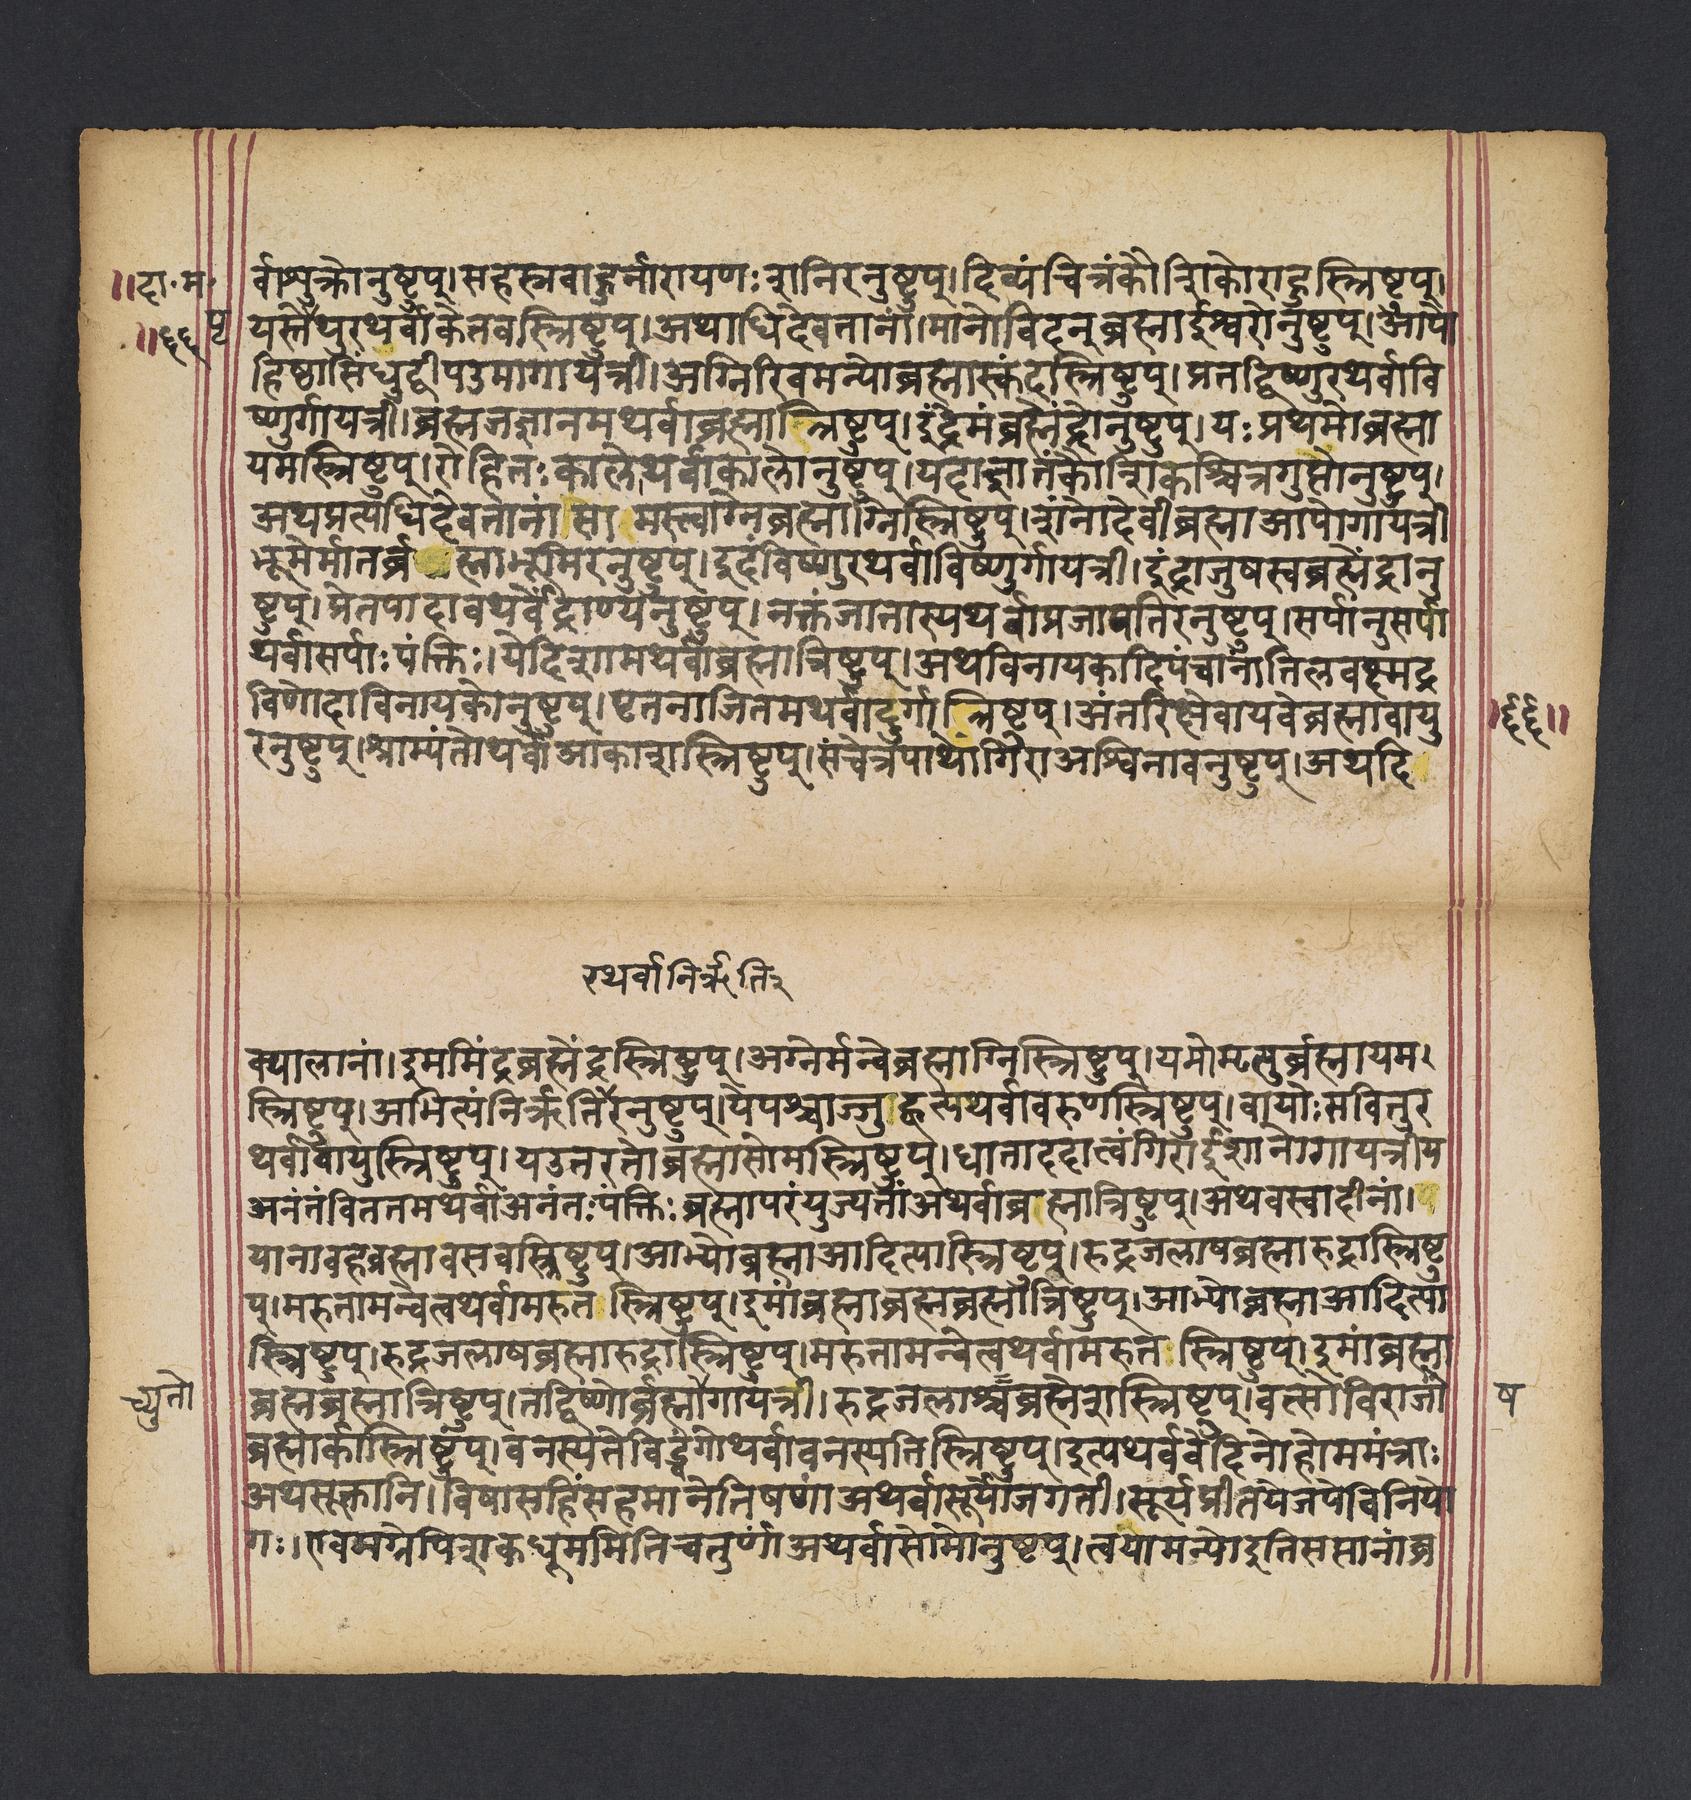 ॥दा॰म॰
॥६६ पृ
र्वाशुक्रोनुष्टुप्।सहस्त्रबाहुर्नारायणःशनिरनुष्टुप्।दिव्यंचित्रंकौशिकोराहुस्त्रिष्टुप्।
यस्तेपृथुरथर्वाकेतवस्त्रिष्टुप्।अथाधिदेवतानां।मानोविदन्ब्रह्माईश्वरोनुष्टुप्।आपो
हिष्ठासिंधुद्वीपउमागायत्री।अग्निरिवमन्योब्रह्मास्कंदस्त्रिष्टुप्।प्रतद्विष्णुरथर्वावि
ष्णुर्गायत्री।ब्रह्मजज्ञानमथर्वाब्रह्मात्रिष्टुप्।इंद्रेमंब्रह्मेंद्रोनुष्टुप्।यःप्रथमोब्रह्मा
यमस्त्रिष्टुप्।रोहितःकालोथर्वाकालोनुष्टुप्।यदाज्ञातंकौशिकश्चित्रगुप्तोनुष्टुप्।
अथप्रत्यधिदेवतानां।समास्त्वाग्नेब्रह्माग्निस्त्रिष्टुप्।शंनोदेवीब्रह्माआपोगायत्री
भूमेर्मातर्ब्रह्माभूमिरनुष्टुप्।इदंविष्णुरथर्वाविष्णुर्गायत्री।इंद्राजुषस्वब्रह्मेंद्रानु
ष्टुप्।प्रेतपादावथर्वेंद्राण्यनुष्टुप्।नक्तंजातास्यथर्वाप्रजापतिरनुष्टुप्।सर्पानुसर्पा
थर्वासर्पाःपंक्तिः।येदिशामथर्वाब्रह्मात्रिष्टुप्।अथविनायकादिपंचानांतिलवक्ष्मद्र
विणोदाविनायकोनुष्टुप्।पृतनाजितमथर्वादुर्गात्रिष्टुप्।अंतरिक्षेवायवेब्रह्मावायु
॥६६॥
रनुष्टुप्।श्राम्यंतोथर्वाआकाशस्त्रिष्टुप्।संचेन्नपाथांगिराअश्विनावनुष्टुप्।अथदि
रथर्वानिर्ऋति२
क्पालानां।इममिंद्रब्रह्मेंद्रस्त्रिष्टुप्।अग्नेर्मन्वेब्रह्माग्निस्त्रिष्टुप्।यमोमृत्युर्ब्रह्मायम
स्त्रिष्टुप्।अभित्यंनिर्ऋतिरनुष्टुप्।येपश्चाज्जुह्वत्यथर्वावरुणस्त्रिष्टुप्।वायोःसवितुर
थर्वावायुस्त्रिष्टुप्।यउत्तरतोब्रह्मासोमस्त्रिष्टुप्।धाताददात्वंगिराईशानोगायत्रीय
अनंतंविततमथर्वाअनंतःपंक्तिःब्रह्मापरंयुज्यतांअथर्वाब्रह्मात्रिष्टुप्।अथवस्वादीनां।
यानावहेब्रह्मावसवस्त्रिष्टुप्।आभ्योब्रह्माआदित्यास्त्रिष्टुप्।रुद्रजलाषब्रह्मारुद्रास्त्रिष्टु
प्।मरुतामन्वेत्वथर्वामरुतस्त्रिष्टुप्।इमांब्रह्माब्रह्मब्रह्मात्रिष्टुप्।आभ्योब्रह्माआदित्या
स्त्रिष्टुप्।रुद्रजलाषब्रह्मारुद्रास्त्रिष्टुप्।मरुतामन्वेत्वथर्वामरुतस्त्रिष्टुप्।इमांब्रह्मा
च्युतो
ब्रह्मब्रह्मात्रिष्टुप्।तद्विष्णोर्ब्रह्मागायत्री।रुद्रजलाश्चब्रह्मेशस्त्रिष्टुप्।वत्सोविराजो
ष
ब्रह्मार्कास्त्रिष्टुप्।वनस्पतेविड्वंगोथर्वावनस्पतिस्त्रिष्टुप्।इत्यथर्ववेदिनोहोममंत्राः
अथसूक्तानि।विषासहिंसहमानेतिषण्णांअथर्वासूर्योजगती।सूर्यप्रीतयेजपेविनियो
गः।शकधूममितिचतुर्णांअथर्वासोमोनुष्टुप्।त्वयामन्योइतिसप्तानांब्र